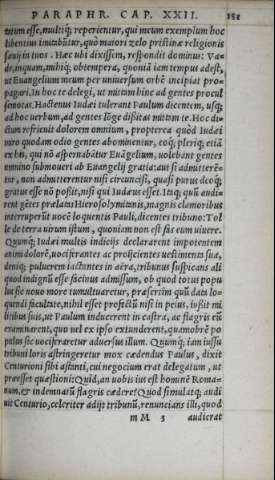 PARAPHR. CAP. XXII. 181
tutum esse, multiq́; reperientur, qui meum exemplum hoc
libentius imitabūtur, quò maiori zelo pristinæ religionis
sæuij in tuos. Hæc ubi dixissem, respondit dominus: Va-
de, inquam, mihiq́; obtempera, quoniā iam tempus adest,
ut Euangelium meum per uniuersum orbē incipiat pro-
pagari. In hoc te delegi, ut mittam hinc ad gentes procul
semotas. Hactenus Iudæi tulerant Paulum dicentem, usq́;
ad hoc uerbum, ad gentes lōge dissitas mittam te. Hoc di-
ctum refricuit dolorem omnium, propterea quòd Iudæi
miro quodam odio gentes abominentur, eoq́; pleriq́; etiā
ex his, qui nō aspernabātur Euāgelium, uolebant gentes
omnino submoueri ab Euangelij gratia: aut si admitterē-
tur, non admitterentur nisi circuncisi, quasi purus deoq́;
gratus esse nō possit, nisi qui Iudæus esset. Itaq́; quū audi-
rent gētes prælatas Hierosolymitanis, magnis clamoribus
interruperūt uocē loquentis Pauli, dicentes tribuno: Tol
le de terra uirum istum, quoniam non est fas eum uiuere.
Quumq́; Iudæi multis indicijs declararent impotentem
animi dolorē, uociferantes ac proijcientes uestimenta sua,
deniq́; puluerem iactantes in aëra, tribunus suspicans ali
quod indignū esse facinus admissum, ob quod totus popu
lus sic uno more tumultuaretur, præsertim quū data lo-
quendi facultate, nihil esset profectū nisi in peius, iussit mi
litibus suis, ut Paulum inducerent in castra, ac flagris eū
examinarent, quo uel ex ipso extunderent, quamobrē po
pulus sic uociferaretur aduersus illum. Quumq́; iam iussu
tribuni loris astringeretur mox cædendus Paulus, dixit
Centurioni sibi astanti, cui negocium erat delegatum, ut
præesset quæstioni: Quid, an uobis ius est hominē Roma-
num, et indemnatū flagris cædere? Quod simulatq́; audi
uit Centurio, celeriter adijt tribunū, renuncians illi, quod
m M 5 audierat